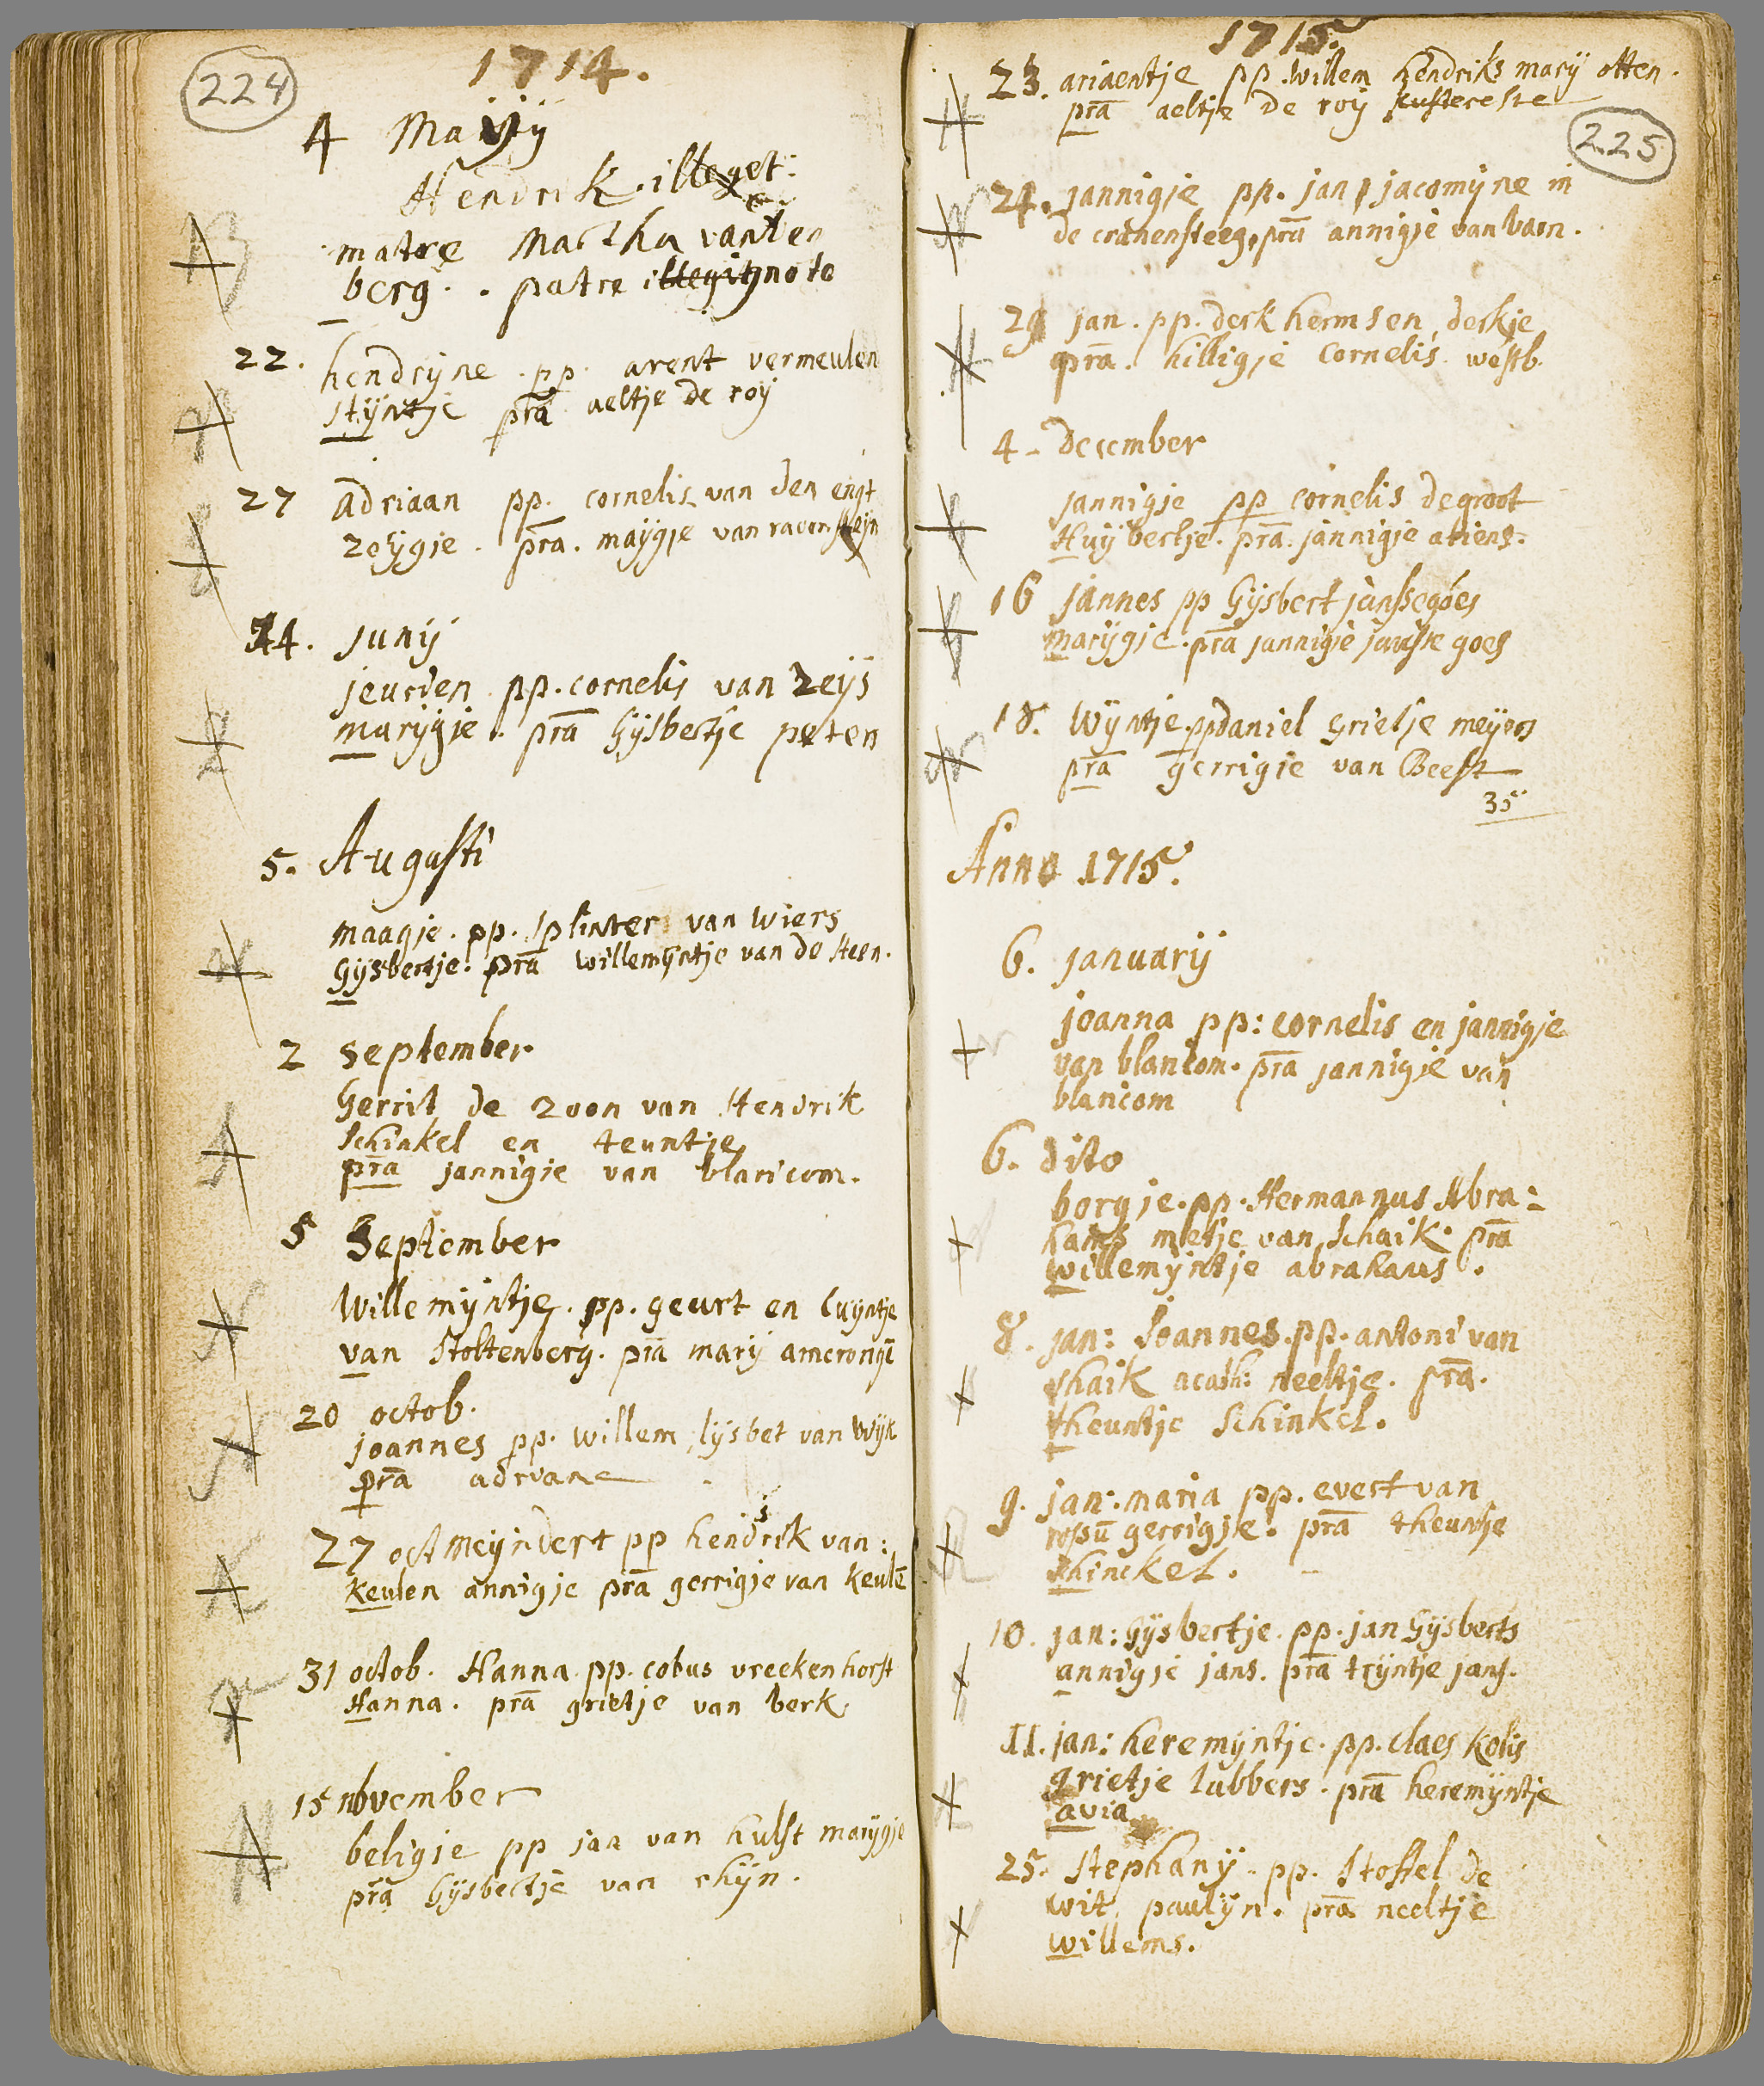 224
1714.
4 Maÿ
Hendrik. illeget:
matre Martha vanden
berg. . patre ignoto
22. hendrijne . pp. arent vermeulen
stijntje pra aeltje de roij
27 Adriaan pp. cornelis van den engt
zoijgje . pra. maijgje van raven steijn
14. Junij
jeurden pp. cornelis van zeijs
marijgje . pra Gijsbertje peten
5. Augusti
maagje . pp. splinter van wiers
Gijsbertje. pra willemijntje van de steen.
2 september
Gerrit de zoon van Hendrik
schinkel en teuntje
pra jannigje van blaricom.
5 September
Willemijntje. pp. geurt en luijntje
van Stoltenberg. pra marij
20 octob.
joannes pp. willem, lijsbet van wijk
pra adriane
27 oct Meijndert pp hendrik van:
keulen annigje pra gerrigje van keulē
31 octob. Hanna. pp. cobus vreekenhorst
Hanna. pra grietje van berk
15 november
beligje pp jan van hulst marijgje
pra Gijsbertje van rhijn.
1715.
23. ariaentje pp. willem hendriks marij otten.
pra aeltje de roij
225
24. jannigje pp. jan, jacomijne in
de cranensteeg, pra annigje van
29 jan. pp. derk hermsen, derkje
pra. hilligje Cornelis westb.
4 - December
jannigje pp cornelis degroot
Huijbertje. pra. jannigje ariens.
16 jannes pp Gijsbert jansse goes
marijgje. pra jannigje jansse goes
18. Wijntje. pp daniel Grietje meijers
pra gerrigje van Beest
35
Anno 1715.
6. januarij
joanna pp: cornelis en jannigje
van blaricom. pra jannigje van
blaricom
6. dito
borgje. pp. Hermannus Abra:
hams metje van Schaik. pra
willemijntje abrahams.
8. jan: Joannes. pp. antoni van
schaik neeltje. pra.
theuntje Schinkel.
9. jan: maria pp. evert van
rossū gerrigje. pra theuntje
schinckel.
10. jan: Gijsbertje. pp. jan Gijsberts
annigje jans. pra trijntje jans.
11. jan: heremijntje. pp. claes kolis
grietje lubbers. pra heremijntje
avia
25. Stephanij. pp. Stoffel de
wit, paulijn. pra neeltje
willems.